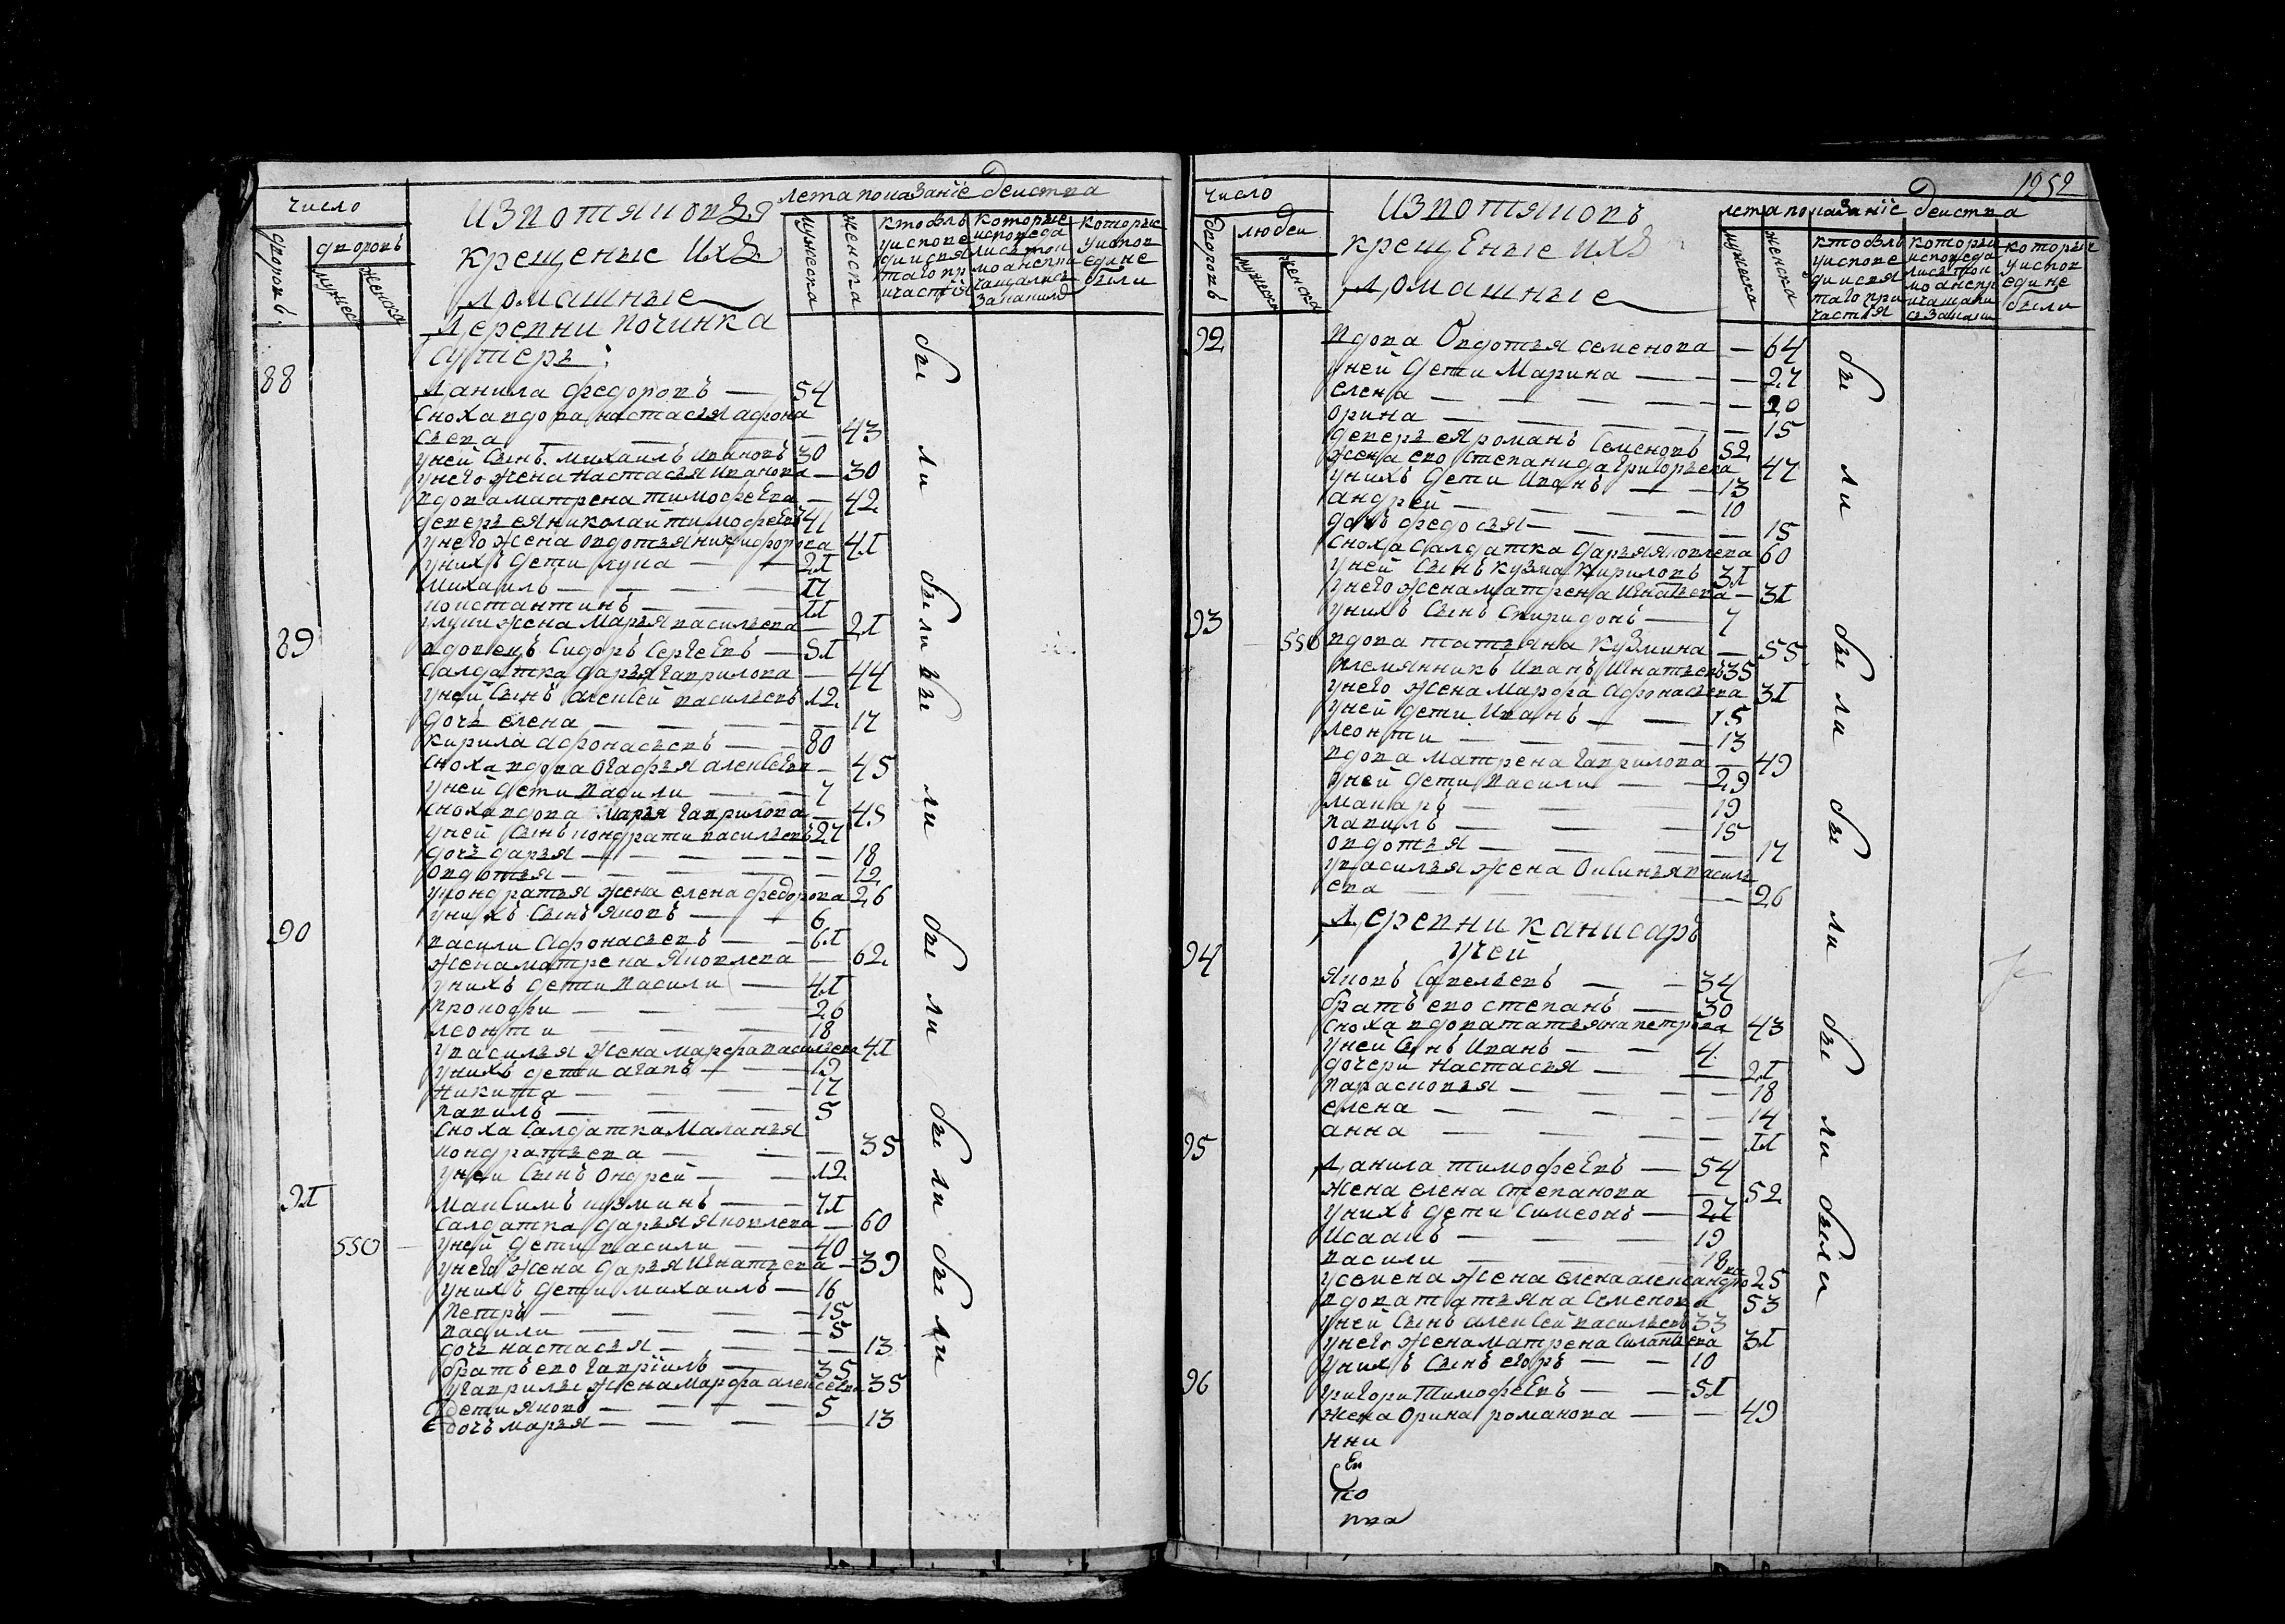 число
дворовъ
дворовъ
мужес
женска
Извотяковъ
крещеные Ихъ
Домашные
лета показанїе действа
мужеска
женска
ктобылъ
уиспове
диисвя
таго пр
ичастїя
которые
исповеда
лисътои
моанепри
чащались
которые
уиспов
едине
были
Деревни починка
88
Данила федоровъ — 54
Сноха вдова настасья афона
сьева — 43
уней сынъ михаилъ ивановъ 30
унего жена настасья иванова — 30
вдова матрена тимофеева — 42
деверь ея николай тимофеевъ 41
унего жена овдотья никифорова 41
унихъ дети лука — 21
михаилъ — 17
константинъ — 11
улуки жена марья васильева — 21
89
вдовецъ Сидоръ Сергеевъ — 51
Салдатка дарья гаврилова — 44
уней сынъ алексей васильевъ 12
дочь елена — 17
кирила афонасьевъ — 80
сноха вдова огафья алексеева — 45
уней дети васили — 7
сноха вдова марья гаврилова — 45
уней сынъ кондрати васильевъ 27
дочь дарья — 18
овдотья — 12
укондратья жена елена федорова 26
унихъ сынъ яковъ — 6
90
васили Афонасьевъ — 61
жена матрена яковлева — 62
унихъ дети васили — 41
прокофи — 26
леонти — 18
увасилья жена марфа васильева 41
унихъ дети агапъ — 19
никита — 17
вавилъ — 5
сноха салдатка маланья
кондратьева — 35
уней сынъ ондрей — 12
91
максимъ кузминъ — 71
салдатка дарья яковлева — 60
550
уней дети васили — 40
унего жена дарья игнатьева — 39
унихъ дети михаилъ — 16
петръ — 15
васили — 5
дочь настасья — 13
братъ ево гаврїилъ — 35
угаврилы жена марфа алексеева 35
дети яковъ — 5
дочь марья — 13
бы ли были бы ли бы ли бы ли бы ли
1252
число
дворовъ
людей
мужеска
женска
Извотяковъ
крещеные Ихъ
Домашные
лета показанїе действа
мужеска
женска
ктобылъ
уиспове
диисвя
таго при
частия
которыи
исповеда
лисътои
моанепр
которые
уиспов
едине
были
92
вдова Овдотья семенова — 64
уней дети Марина — 27
елена — 20
орина — 15
деверь ея романъ семеновъ 52
жена ево степанида григорьева 47
унихъ дети иванъ — 13
андрей — 10
дочь федосья — 15
сноха салдатка дарья яковлева 60
уней сынъ кузма кириловъ 31
унего жена матрена игнатьева — 31
унихъ сынъ спиридонъ — 7
93
550
вдова татьяна кузмина — 55
племянникъ иванъ игнатьевъ 35
унего жена марфа афонасьева 31
уней дети иванъ — 15
леонти — 13
вдова матрена гаврилова — 49
уней дети васили — 29
макаръ — 19
вавилъ — 15
овдотья — 17
увасилья жена оксинья василь
ева — 26
Деревни канисаръ
учей
94
яковъ савельевъ — 34
братъ ево степанъ — 30
сноха вдова татьяна петрова 43
уней сынъ иванъ — 4
дочери настасья — 21
парасковья — 18
елена — 14
анна — 11
95
Данила тимофеевъ — 54
жена елена степанова — 52
унихъ дети симеонъ — 27
исаакъ — 19
васили — 18
усемена жена елена александро ва 25
вдова татьяна семенова 53
уней сынъ алексей васильевъ 33
унего жена матрена силантьева 31
унихъ сынъ егоръ — 10
96
григори тимофеевъ — 51
жена орина романова — 49
нни
ко
бы ли бы ли бы ли бы ли были